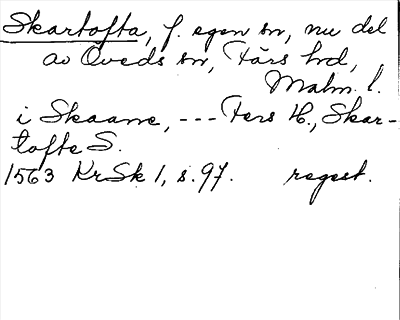 Skartofta, f. egen sn, nu del
av Öveds sn, Färs hrd,
Malm. l.
i Skaane, --- Fers H., Skar-
tofte S.
1563 KrSk 1, s. 97. regest.